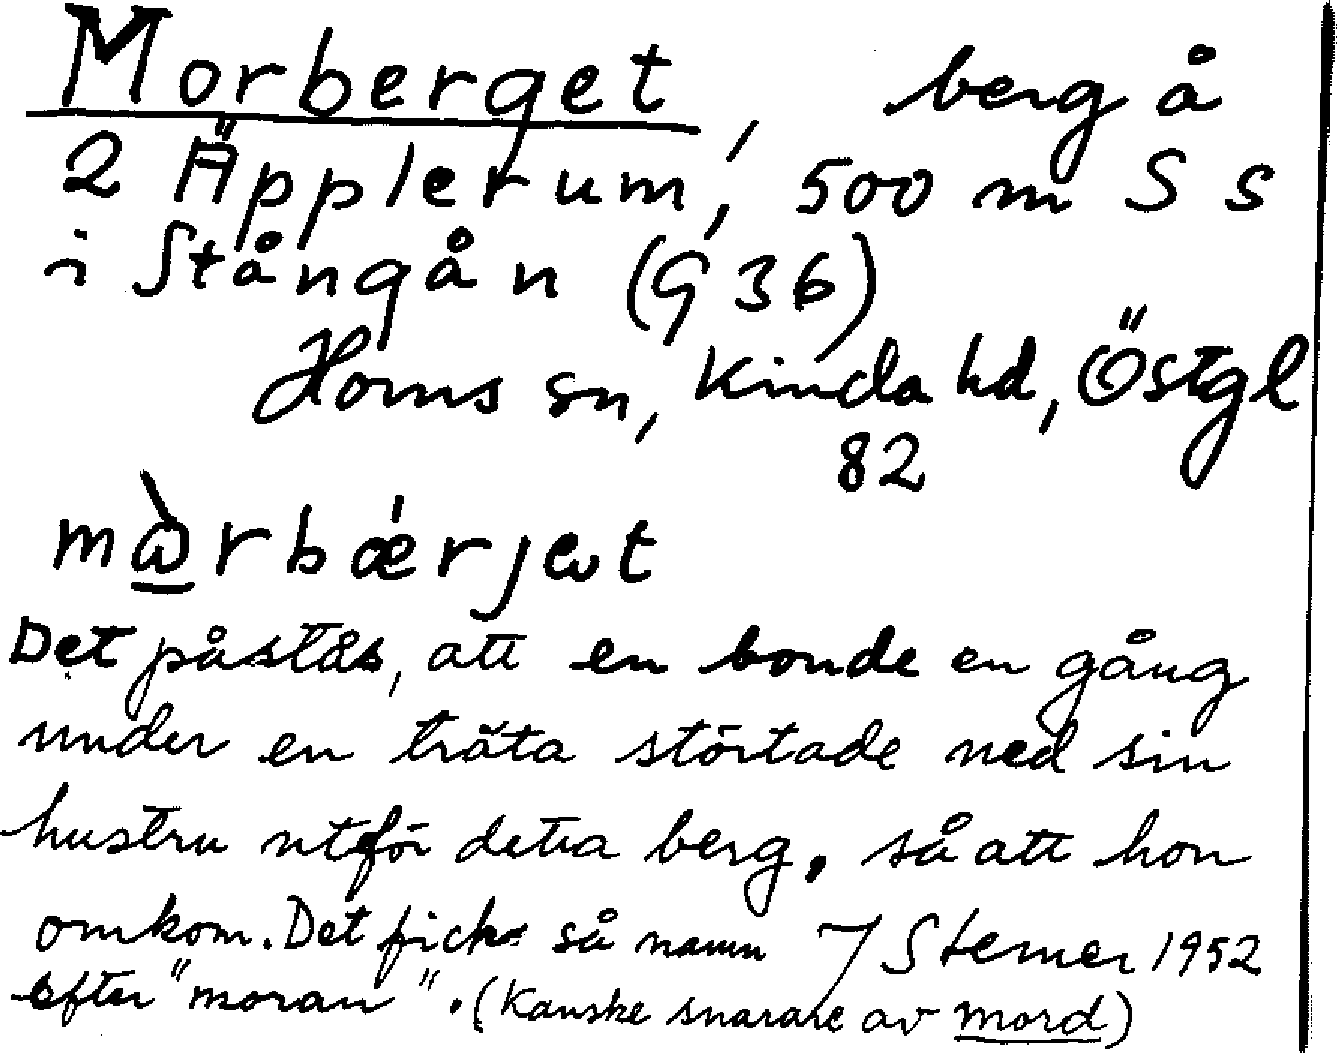 Morberget, berg å
2 Äpplerum, 500 m S s
i Stångån (G 36)
Horns sn, Kinda hd, Östgl
82
mὼrbǽrjet
Det påstås, att en bonde en gång
under en träta störtade ned sin
hustru utför detta berg, så att hon
omkom. Det fick så namn
efter "moran". (Kanske snarare av mord)
J Sterner 1952